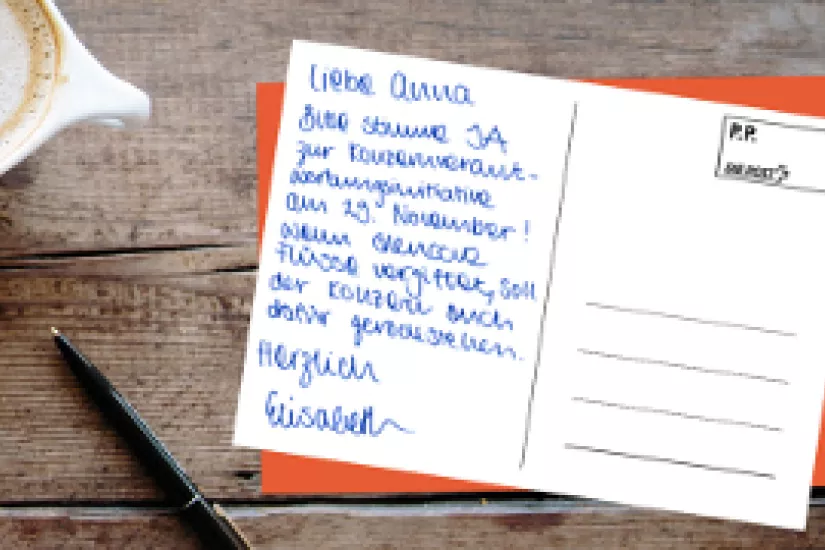 Liebe Anna
Bitte stimme JA
zur Konzernverant-
wortungsinitiative
am 29. November!
Wenn Glencore
Flüsse vergiftet, soll
der Konzern auch
dafür geradestehen.
Herzlich
Elisabeth
P.P.